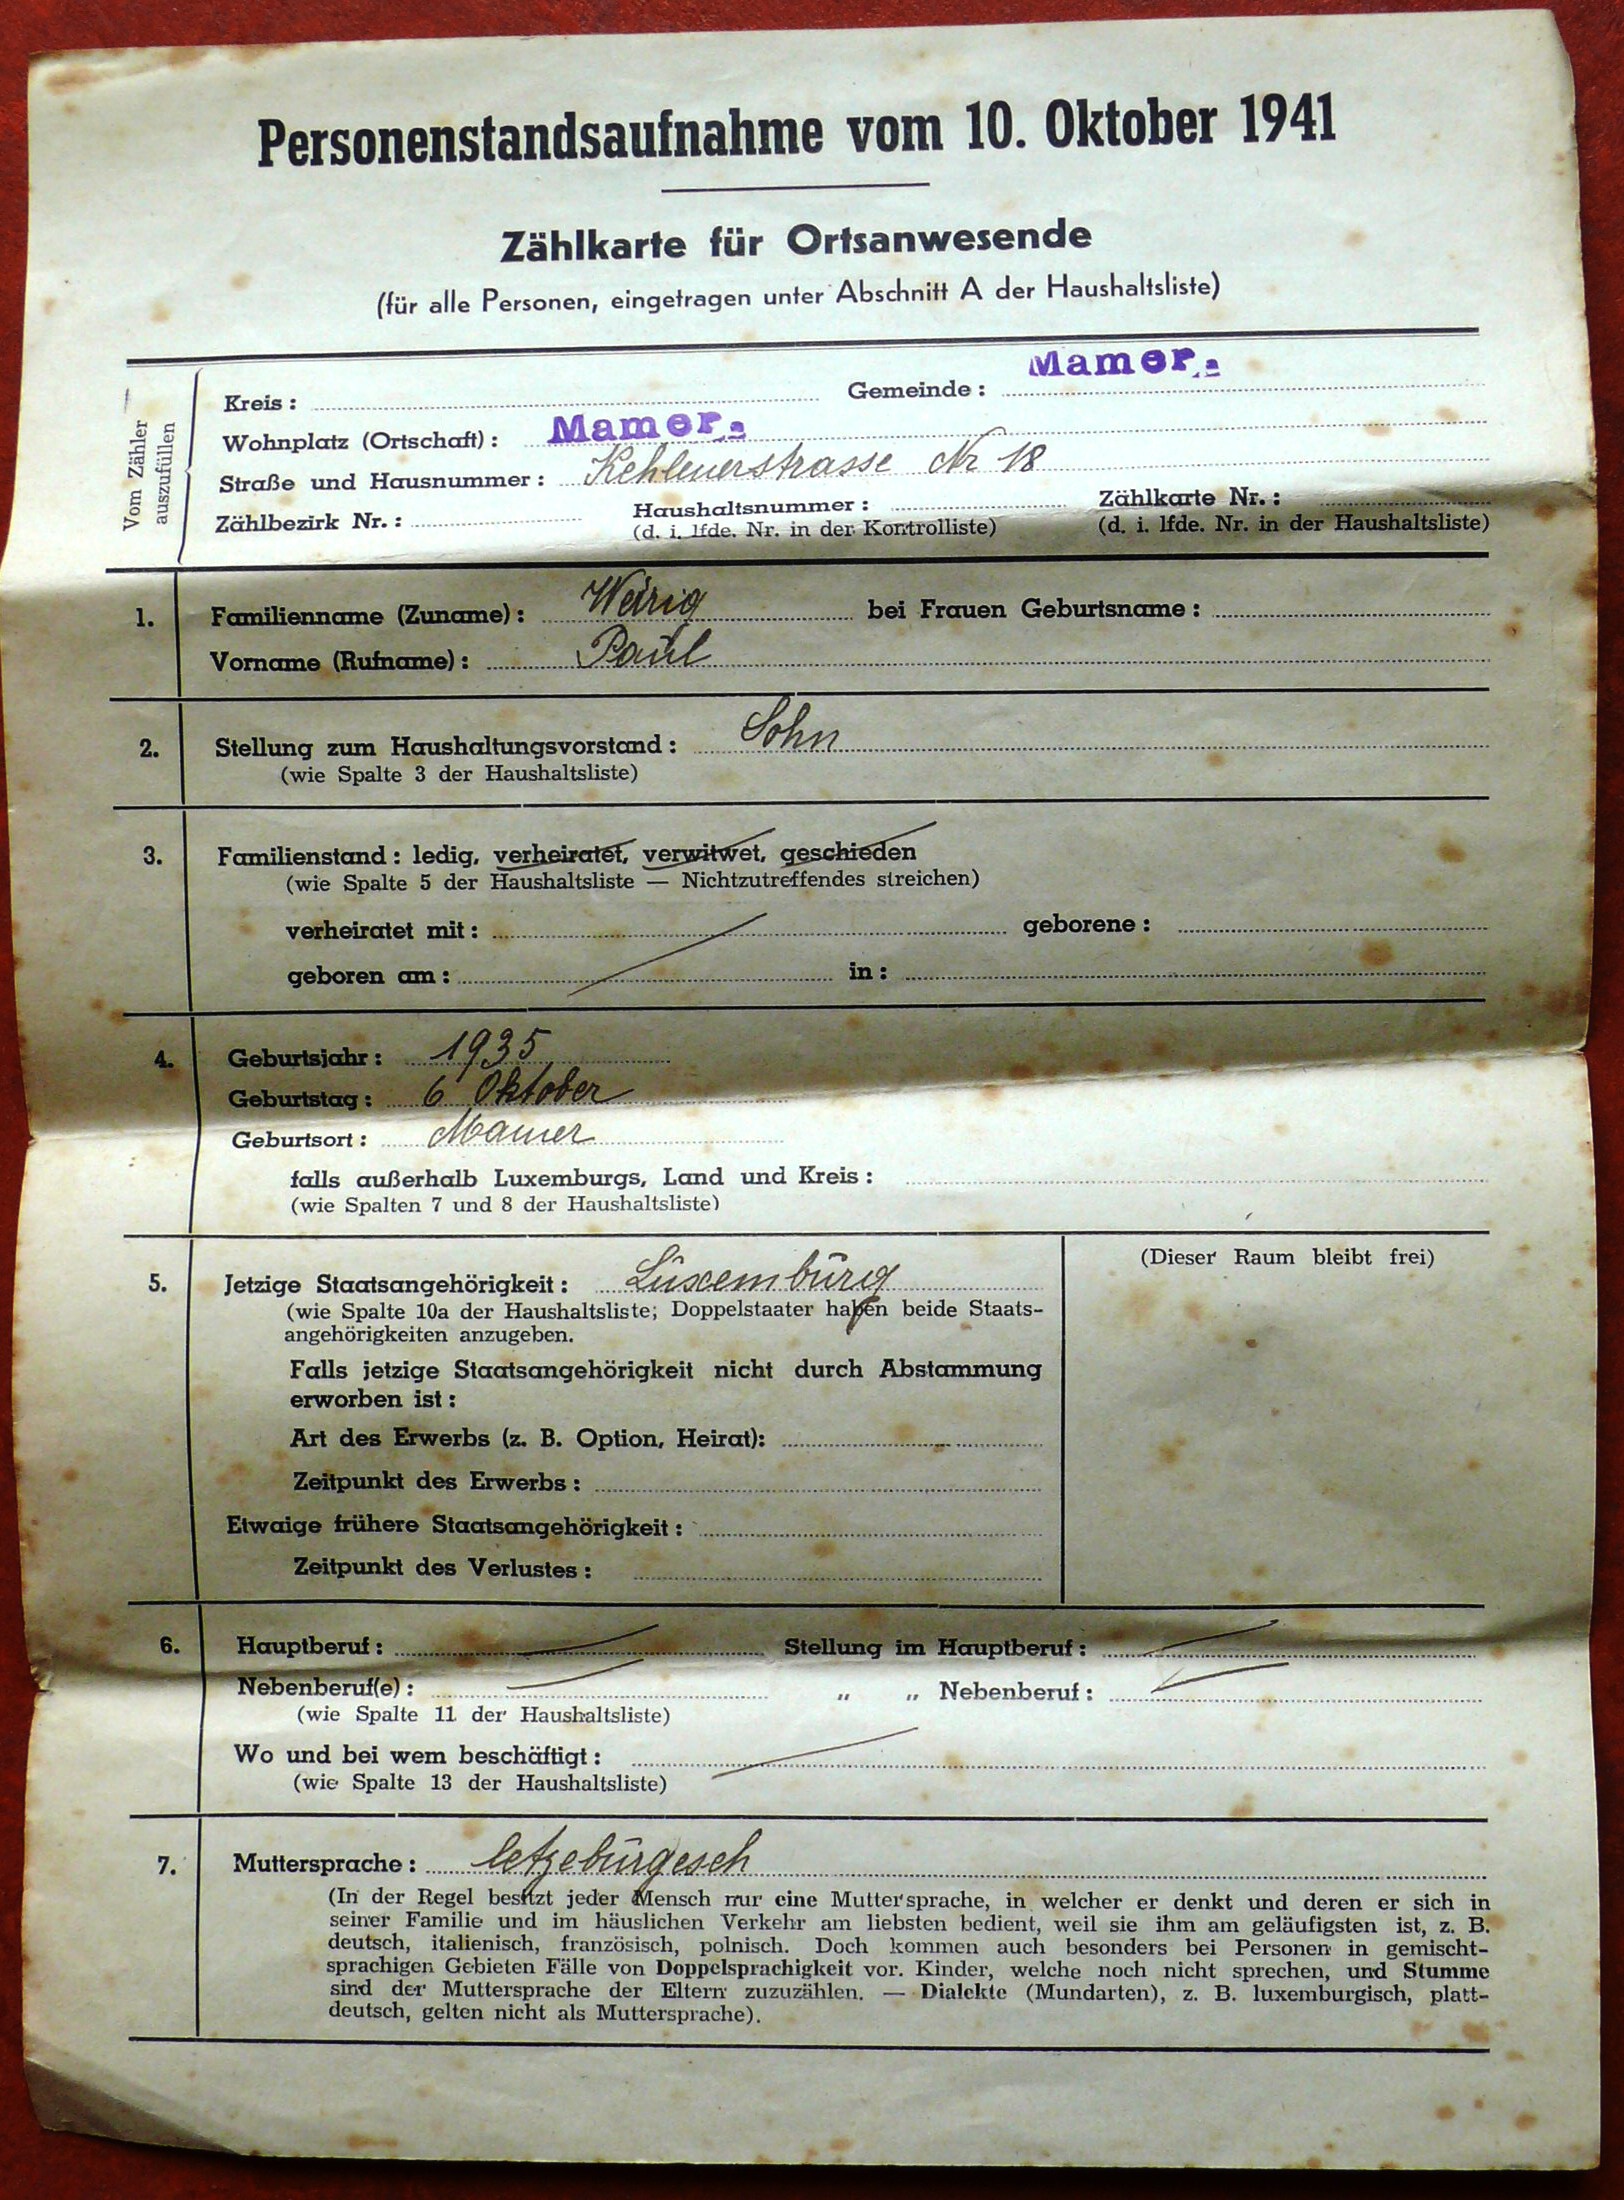 Personenstandsaufnahme vom 10. Oktober 1941
Zählkarte für Ortsanwesende
(für alle Personen, eingetragen unter Abschnitt A der Haushaltsliste)
Vom Zähler auszufüllen
Kreis : Gemeinde : Mamer.
Wohnplatz (Ortschaft) : Mamer.
Straße und Hausnummer : Kehlenerstrasse Nr 18
Zählbezirk Nr. : Haushaltsnummer : Zählkarte Nr. :
(d. i. lfde. Nr. in der Kontrolliste) (d. i. lfde. Nr. in der Haushaltsliste)
1. Familienname (Zuname) : Weirig bei Frauen Geburtsname :
Vorname (Rufname) : Paul
2. Stellung zum Haushaltungsvorstand : Sohn
(wie Spalte 3 der Haushaltsliste)
3. Familienstand : ledig, verheiratet, verwitwet, geschieden
(wie Spalte 5 der Haushaltsliste — Nichtzutreffendes streichen)
verheiratet mit : geborene :
geboren am : in :
4. Geburtsjahr : 1935
Geburtstag : 6 Oktober
Geburtsort : Mamer
falls außerhalb Luxemburgs, Land und Kreis :
(wie Spalten 7 und 8 der Haushaltsliste)
(Dieser Raum bleibt frei)
5. Jetzige Staatsangehörigkeit : Luxemburg
(wie Spalte 10a der Haushaltsliste; Doppelstaater haben beide Staats-
angehörigkeiten anzugeben.
Falls jetzige Staatsangehörigkeit nicht durch Abstammung
erworben ist :
Art des Erwerbs (z. B. Option, Heirat):
Zeitpunkt des Erwerbs :
Etwaige frühere Staatsangehörigkeit :
Zeitpunkt des Verlustes :
6. Hauptberuf : Stellung im Hauptberuf :
Nebenberuf(e) : „ „ Nebenberuf :
(wie Spalte 11 der Haushaltsliste)
Wo und bei wem beschäftigt :
(wie Spalte 13 der Haushaltsliste)
7. Muttersprache : letzeburgesch
(In der Regel besitzt jeder Mensch nur eine Muttersprache, in welcher er denkt und deren er sich in
seiner Familie und im häuslichen Verkehr am liebsten bedient, weil sie ihm am geläufigsten ist, z. B.
deutsch, italienisch, französisch, polnisch. Doch kommen auch besonders bei Personen in gemischt-
sprachigen Gebieten Fälle von Doppelsprachigkeit vor. Kinder, welche noch nicht sprechen, und Stumme
sind der Muttersprache der Eltern zuzuzählen. — Dialekte (Mundarten), z. B. luxemburgisch, platt-
deutsch, gelten nicht als Muttersprache).